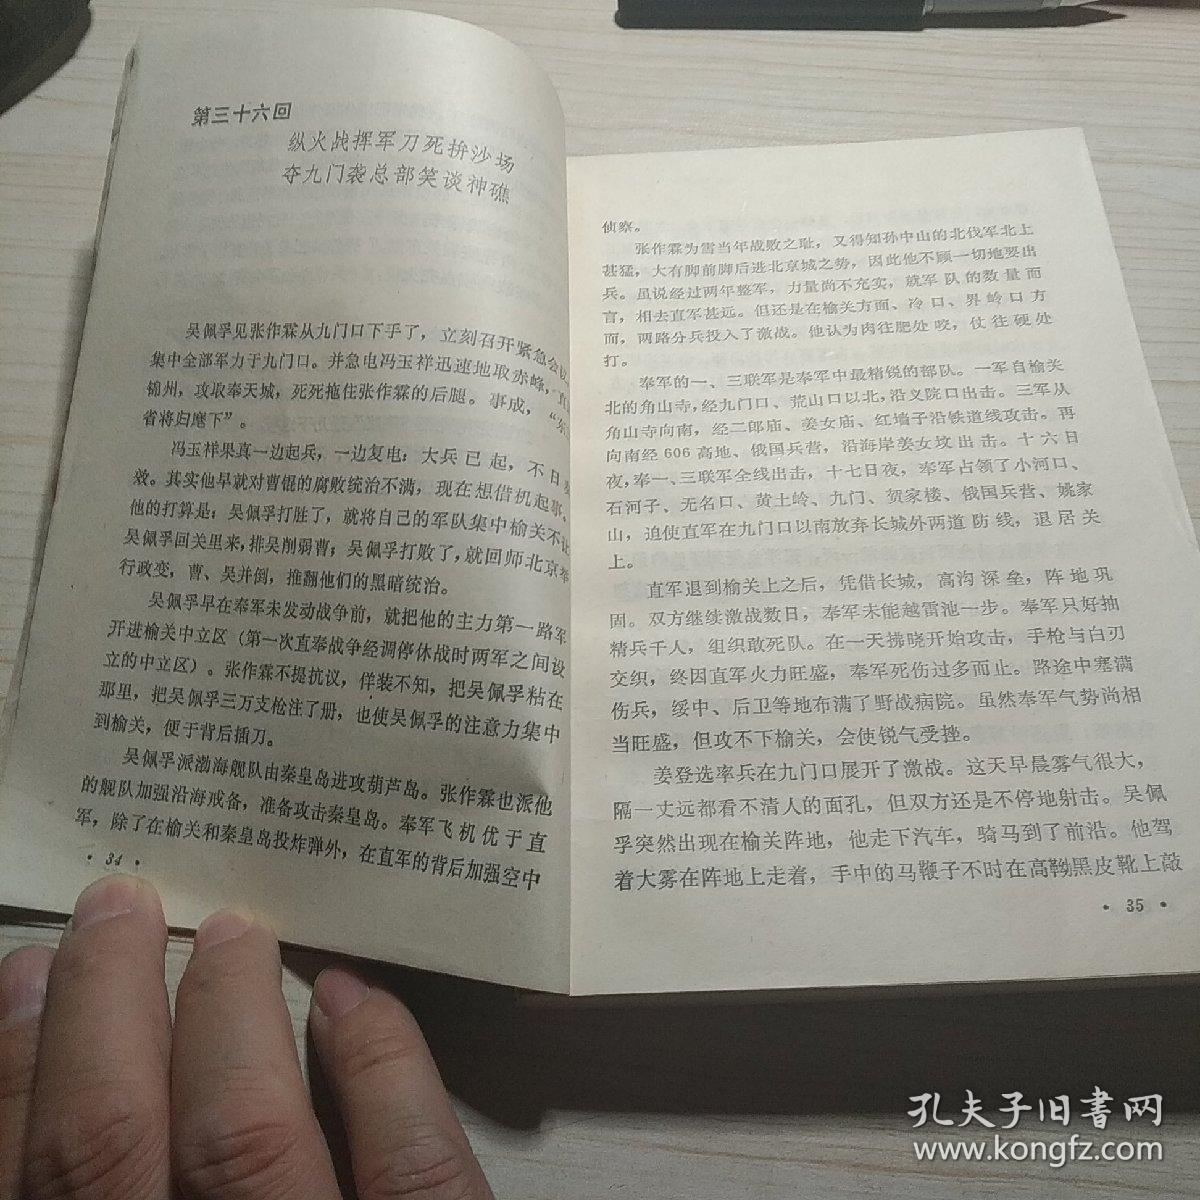 第三十六回
纵火战挥军刀死拚沙场
夺九门袭总部笑谈神礁
吴佩孚见张作霖从九门口下手了，立刻召开紧急会议
集中全部军力于九门口。并急电冯玉祥迅速地取赤峰，直
锦州，攻取奉天城，死死拖住张作霖的后腿。事成，“东
省将归麾下”。
冯玉祥果真一边起兵，一边复电：大兵已起，不日
效。其实他早就对曹锟的腐败统治不满，现在想借机起事，
他的打算是：吴佩孚打胜了，就将自己的军队集中榆关不让
吴佩孚回关里来，排吴削弱曹；吴佩孚打败了，就回师北京举
行政变，曹、吴并倒，推翻他们的黑暗统治。
吴佩孚早在奉军未发动战争前，就把他的主力第一路军
开进榆关中立区（第一次直奉战争经调停休战时两军之间设
立的中立区）。张作霖不提抗议，佯装不知，把吴佩孚粘在
那里，把吴佩孚三万支枪注了册，也使吴佩孚的注意力集中
到榆关，便于背后插刀。
吴佩孚派渤海舰队由秦皇岛进攻葫芦岛。张作霖也派他
的舰队加强沿海戒备，准备攻击秦皇岛。奉军飞机优于直
军，除了在榆关和秦皇岛投炸弹外，在直军的背后加强空中
• 34 •
侦察。
张作霖为雪当年战败之耻，又得知孙中山的北伐军北上
甚猛，大有脚前脚后进北京城之势，因此他不顾一切地要出
兵。虽说经过两年整军，力量尚不充实，就军队的数量而
言，相去直军甚远。但还是在榆关方面、冷口、界岭口方
面，两路分兵投入了激战。他认为肉往肥处咬，仗往硬处
打。
奉军的一、三联军是奉军中最精锐的部队。一军自榆关
北的角山寺，经九门口、荒山口以北，沿义院口出击。三军从
角山寺向南，经二郎庙、姜女庙、红墙子沿铁道线攻击。再
向南经606高地、俄国兵营，沿海岸姜女坟出击。十六日
夜，奉一、三联军全线出击，十七日夜，奉军占领了小河口、
石河子、无名口、黄土岭、九门、贺家楼、俄国兵营、姚家
山，迫使直军在九门口以南放弃长城外两道防线，退居关
上。
直军退到榆关上之后，凭借长城，高沟深垒，阵地巩
固。双方继续激战数日，奉军未能越雷池一步。奉军只好抽
精兵千人，组织敢死队。在一天拂晓开始攻击，手枪与白刃
交织，终因直军火力旺盛，奉军死伤过多而止。路途中塞满
伤兵，绥中、后卫等地布满了野战病院。虽然奉军气势尚相
当旺盛，但攻不下榆关，会使锐气受挫。
姜登选率兵在九门口展开了激战。这天早晨雾气很大，
隔一丈远都看不清人的面孔，但双方还是不停地射击。吴佩
孚突然出现在榆关阵地，他走下汽车，骑马到了前沿。他驾
着大雾在阵地上走着，手中的马鞭子不时在高靿黑皮靴上敲
• 35 •
孔夫子旧书网
www.kongfz.com